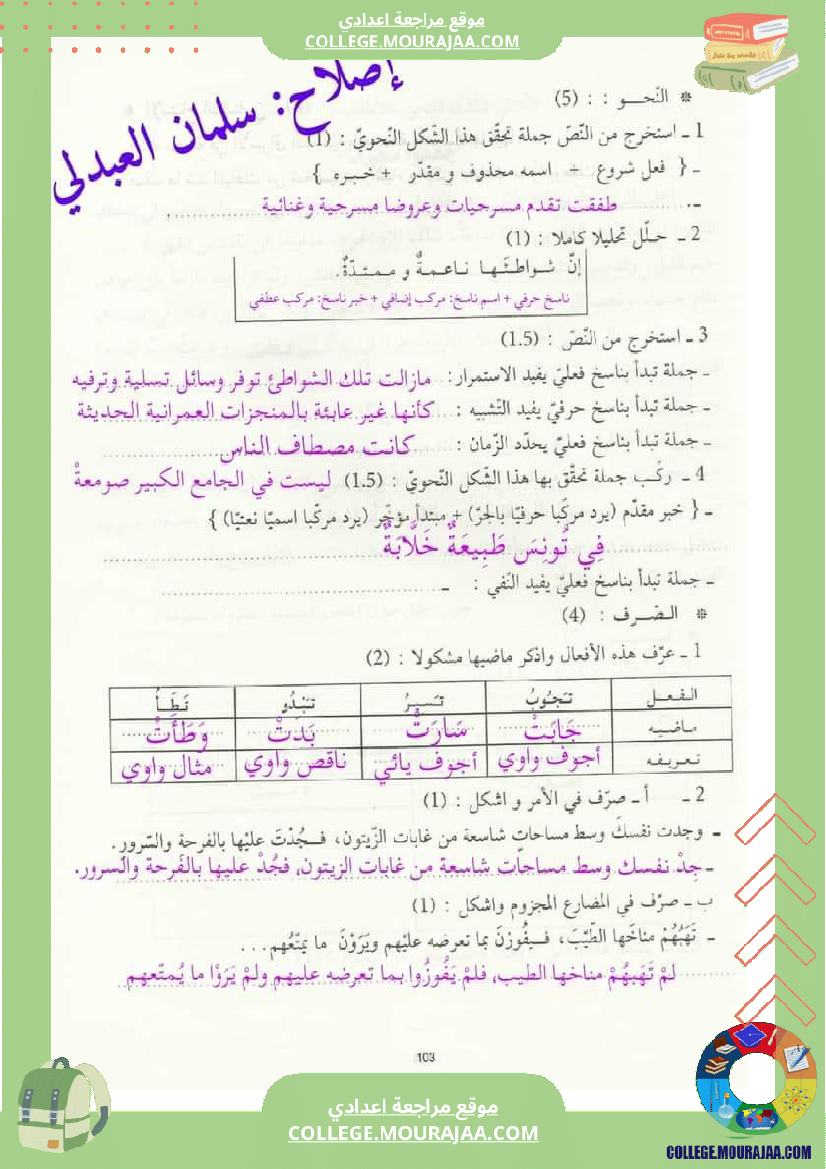 موقع مراجعة اعدادي
COLLEGE.MOURAJAA.COM
إصلاح: سلمان العبدلي
* النّحـــو : : (5)
1 ـ استخرج من النّصّ جملة تحقّق هذا الشّكل النّحويّ : (1)
ـ { فعل شروع + اسمه محذوف و مقدّر + خبره }
ـ طفقت تقدم مسرحيات وعروضا مسرحية وغنائية
2 ـ حلّل تحليلا كاملا : (1)
إنّ شواطئها ناعمةٌ و ممتدّةٌ.
ناسخ حرفي + اسم ناسخ: مركب إضافي + خبر ناسخ: مركب عطفي
3 ـ استخرج من النّصّ : (1.5)
ـ جملة تبدأ بناسخ فعليّ يفيد الاستمرار: مازالت تلك الشواطئ توفر وسائل تسلية وترفيه
ـ جملة تبدأ بناسخ حرفيّ يفيد التّشبيه : كأنها غير عابئة بالمنجزات العمرانية الحديثة
ـ جملة تبدأ بناسخ فعليّ يحدّد الزّمان : كانت مصطاف الناس
4 ـ ركّب جملة تحقّق بها هذا الشّكل النّحويّ : (1.5) ليست في الجامع الكبير صومعةْ
ـ { خبر مقدّم (يرد مركّبا حرفيّا بالجرّ) + مبتدأ مؤخّر (يرد مركّبا اسميّا نعتيّا) }
فِي تُونِسَ طَبِيعَةٌ خَلَّابَةٌ
ـ جملة تبدأ بناسخ فعليّ يفيد النّفي : ـ
* الصّرف : (4)
1 ـ عرّف هذه الأفعال واذكر ماضيها مشكولا : (2)
الفعل تَجُوبُ تَسيرُ تَبْدُو تَطَأُ
ماضيه جَابَتْ سَارَتْ بَدَتْ وَطَأَتْ
تعريفه أجوف واوي أجوف يائي ناقص واوي مثال واوي
2 ـ أ ـ صرّف في الأمر و اشكل : (1)
ـ وجدت نفسكَ وسط مساحاتٍ شاسعة من غابات الزّيتون، فـجُدْتَ عليْها بالفرحةِ والسّرورِ.
ـ جِدْ نفسك وسط مساحاتٍ شاسعة من غابات الزيتون، فجُدْ عليها بالفَرحة والسرور.
ب ـ صرّف في المضارع المجزوم واشكل : (1)
ـ تَهَبُهُمْ مناخَها الطّيّبَ، فـيفُوزُنَ بما تعرضه عليْهم ويَرَوْنَ ما يمتّعُهم...
لمْ تَهَبهُمْ مناخها الطيب، فلمْ يَفُوزُوا بما تعرضه عليهم ولمْ يَرَوْا ما يُمتّعهم
103
موقع مراجعة اعدادي
COLLEGE.MOURAJAA.COM
COLLEGE.MOURAJAA.COM